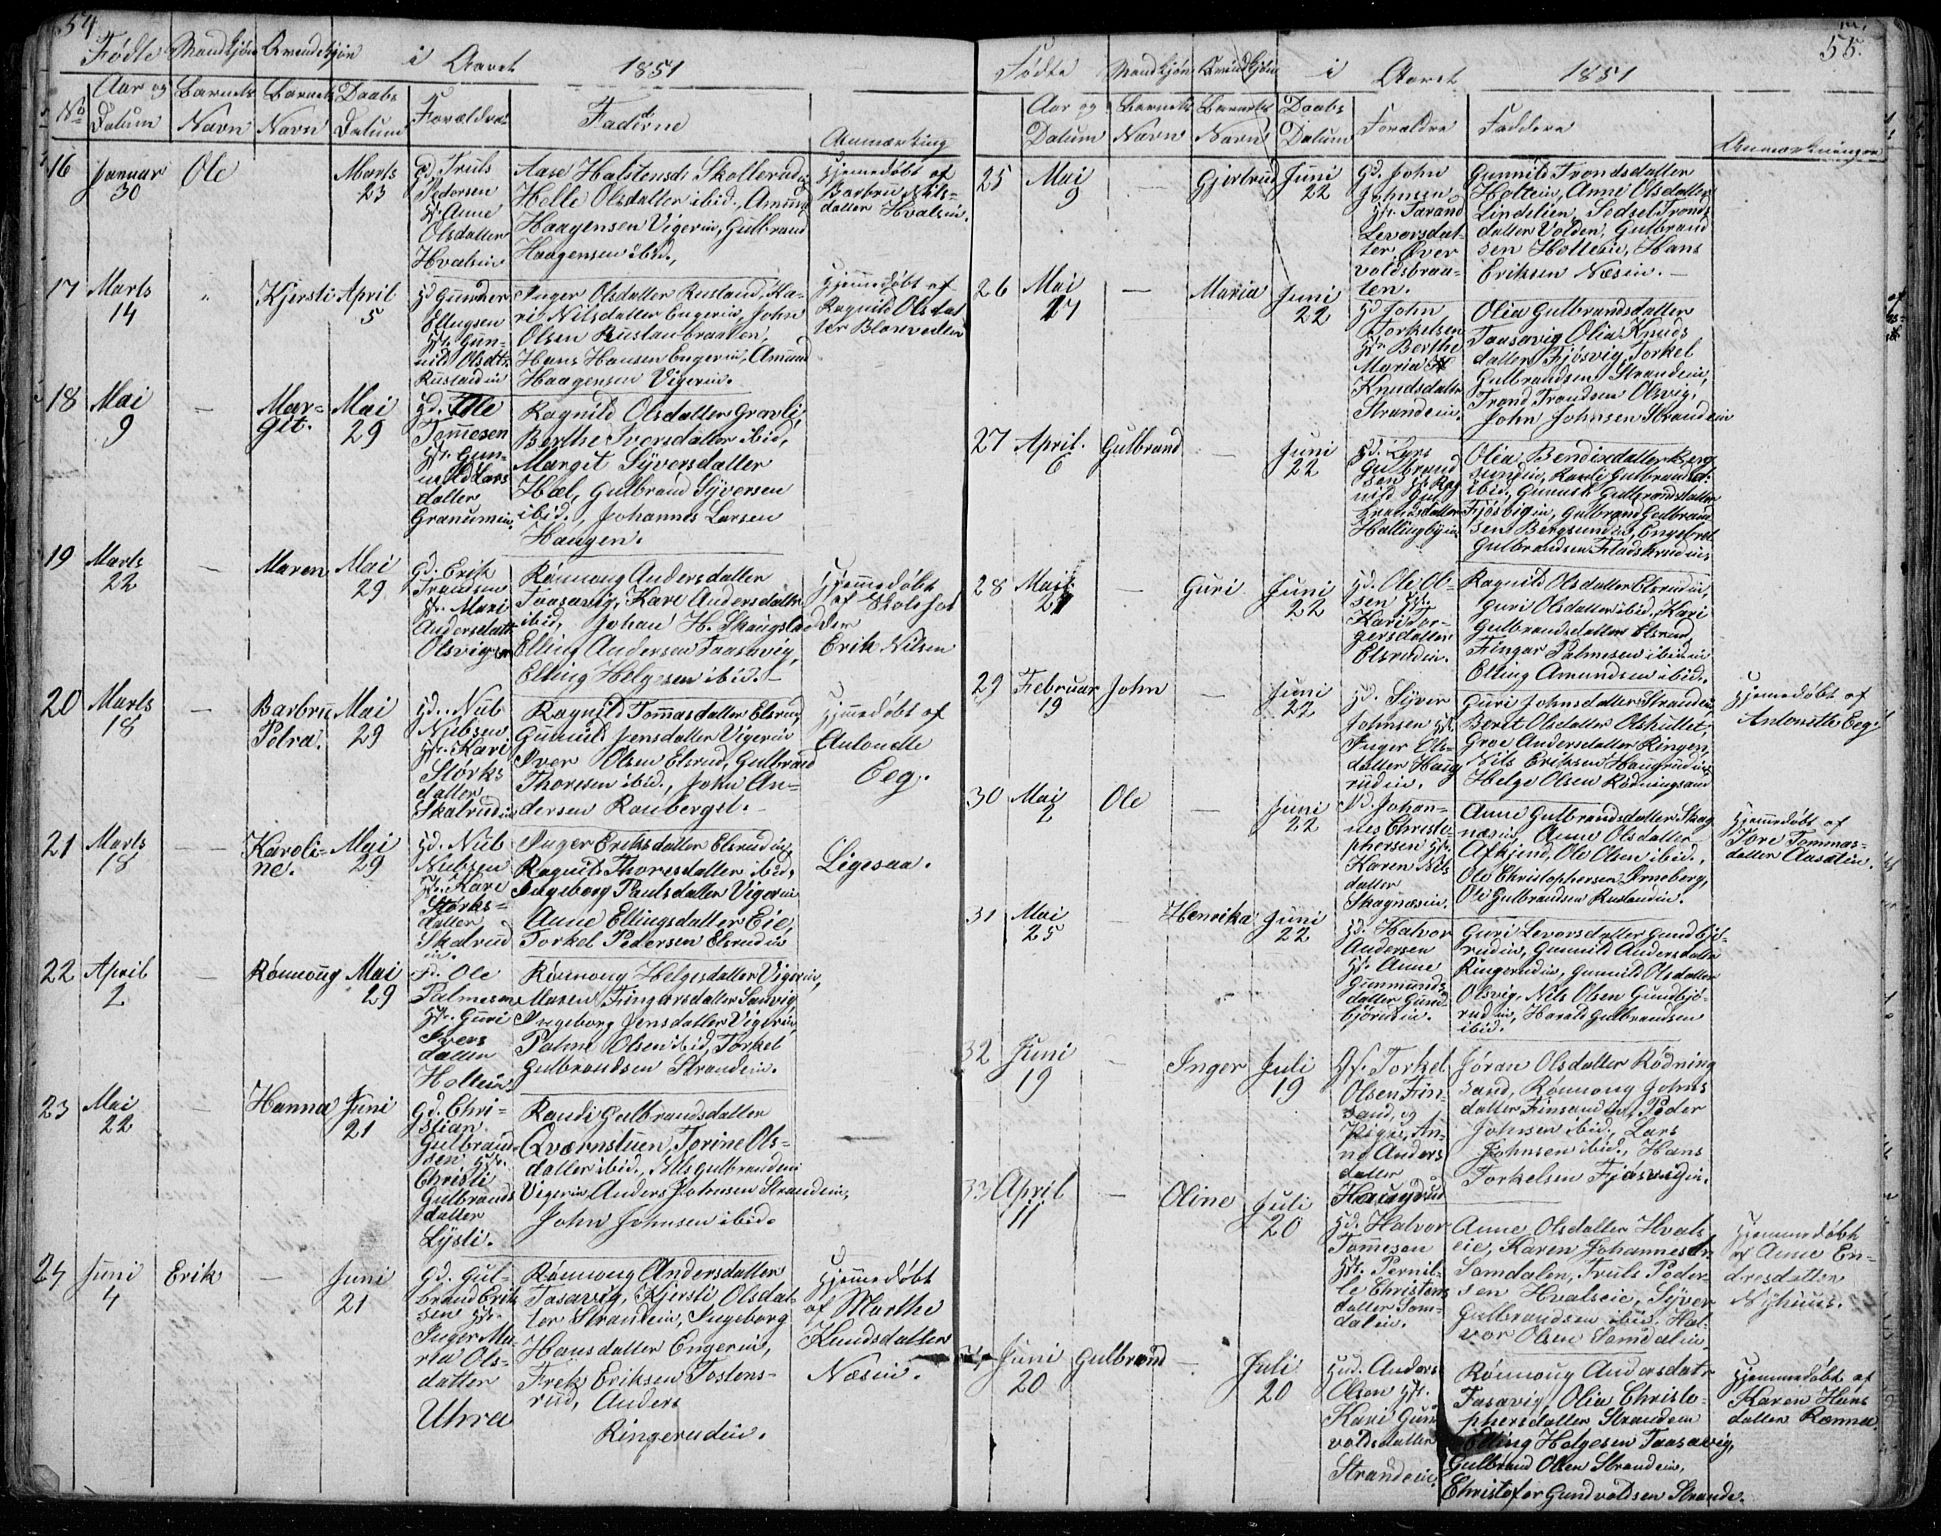 54
Fødte Mandkjøn Qvindekjøn i Aaret 1851
No Aar og Datum Barnets Navn Barnets Navn Daabs Datum Forældre Faderne Anmærkning
16 Januar 30 Ole Marts 23
Gd Truls
Pedersen
H. Anne
Olsdatter
Hvalsein
Aase Halstensdr Skollerud
Helle Olsdatter ibid, Amund
Haagensen Vigerin, Gulbrand
Haagensen ibid.
Hjemmedøbt af
Barbru Nils-
datter Hvalsein.
17 Marts 14 " Kjersti April 5
Hd Gunner
Ellingsen
H. Gun-
nild Olsdtr
Rustadin
Inger Olsdatter Rustand, Ka-
ri Nilsdatter Engerin, John
Olsen Rustanbraaten,
Hans Hansen Engerin, Amund
Haagensen Vigerin.
Hjemmedøbt af
Ragnild Olsdat
ter Blakvedlien
18 Mai 9 — Mar-
git. Mai 29
Hd. Ole
Tommesen
H. Gun-
nild Lars
datter
Granumin.
Ragnild Olsdatter Gravli,
Berthe Iversdatter ibid,
Margit Syversdatter
Hæl, Gulbrand Syversen
ibid., Johannes Larsen
Haugen.
19 Marts 22 — Maren Mai 29
Gd. Erik
Trondsen
H. Mari
Andersdatter
Olsvigen
Rønnoug Andersdatter
Taasavig, Kari Andersdatter
ibid, Johan H. Skaugstad
Elling Andersen Taasavig,
Elling Helgesen ibid.
Hjemmedøbt
af Skolehol
der
Erik Nilsen
20 Marts 18 — Barbru
Petra. Mai 29
Hd. Nub
Nubsen
H. Kari
Størks
datter
Skalrudin
Ragnild Tommasdatter Elsrud,
Gunnild Jensdatter Vigerin
Iver Olsen Elsrud, Gulbrand
Thoresen ibid, John An-
dersen Raubergst.
Hjemmedøbt af
Antonette
Eeg.
21 Marts 18 — Karoli-
ne. Mai 29
Hd. Nub
Nubsen
H. Kari
Størks-
datter
Skalrud
in.
Inger Eriksdatter Elsrudin,
Ragnild Thoresdatter ibid,
Ingeborg Paulsdatter Vigerin
Anne Ellingsdatter Eie,
Torkel Pedersen Elsrudin
Ligesaa.
22 April 2 — Rønnoug Mai 29
Hd. Ole
Palmesen
H. Guri
Ivers
datter
Holtein.
Rønnoug Helgesdatter Vigerin,
Maren Fingarsdatter Samvig
Ingeborg Jensdatter Vigerin
Palme Olsen ibid, Torkel
Gulbrandsen Strandein.
23 Mai 22 — Hanna Juni 21
Gd. Chri-
stian
Gulbrand-
sen H.
Christi
Gulbrands
datter
Lysti.
Randi Gulbrandsdatter
Qværnstuen, Torine Ols-
datter ibid, Nils Gulbrandsen
Vigerin, Anders Johnsen Strandein,
John Johnsen ibid.
24 Juni 4 Erik — Juni 21
Gd. Gul-
brand Erik
sen H.
Inger Ma-
ria Ols-
datter
Uhra
Rønnoug Andersdatter
Tasavig, Kjersti Olsdat-
ter Strandein, Ingeborg
Hansdatter Engerin,
Erik Eriksen Tostens-
rud, Anders
Ringerudin.
Hjemmedøbt
af Marthe
Knudsdatter
Næsin.
55.
Fødte Mandkjøn Qvindkjøn i Aaret 1851
Aar og Datum Barnets Navn Barnets Navn Daabs Datum Forældre Faddere Anmærkninger
25 Mai 9 Gjertrud Juni 22
Gd. John
Johnsen
H. Taran
Levorsdat-
ter, Over
voldsbraa-
ten.
Gunnild Trondsdatter
Holtein, Anne Olsdatter
Lindelien, Sedsel Tronds
datter Volden, Gulbrand
sen Holtein, Hans
Eriksen Næsin.
26 Mai 17 — Maria Juni 22
Hd John
Torkelsen
H. Berthe
Maria
Knudsdatter
Strandein.
Olia Gulbrandsdatter
Taasavig Olia Knuds
datter Fjøsvig, Torkel
Gulbrandsen Strandein,
Trond Trondsen Olsvig,
John Johnsen Strandein
27 April 6 Gulbrand — Juni 22
Hd. Lars
Gulbrand
sen H. Rag
nild Gul
brandsdatter
Hallingbyin
Olia Bendixdatter Berg
sundin, Randi Gulbrandsdtr
ibid, Gunild Gulbrandsdatter
Fjøsvigin, Gulbrand Gulbrand
sen Bergsundin, Engebret
Gulbrandsen Fladskrudin
28 Mai 21 — Guri Juni 22
Hd. Ole Ol-
sen H.
Kari Tor-
gersdatter
Elsrudin.
Ragnild Olsdatter Elsrudin,
Guri Olsdatter ibid, Kari
Gulbrandsdatter Elsrud,
Fingar Palmesen ibid.
Elling Amundsen ibid.
29 Februar 19 John — Juni 22
Hd. Syver
Johnsen H.
Inger Ols-
datter Haug
rudin.
Guri Johnsdatter Strandein
Berit Olsdatter Olshullet,
Groe Andersdatter Ringen,
Nils Eriksen Haugrudin
Helge Olsen Rødningsand
Hjemmedøbt af
Antonette Eeg.
30 Mai 2 Ole — Juni 22
Nd. Johan-
nes Christo
phersen H.
Karen Nils
datter
Skagnæsin.
Anne Gulbrandsdatter Skag
næsin, Anne Olsdatter
Afkjend, Ole Olsen ibid.,
Ole Christophersen Arneberg,
Ole Gulbrandsen Rustandin.
Hjemmedøbt af
Tore Tommas-
datter Aasætin.
31 Mai 25 — Henrika Juni 22
Hd. Halvor
Andersen
H. Anne
Gunmunds
datter Gund-
bjørudin.
Guri Levorsdatter Gundbjø-
rudin, Gunnild Andersdatter
Ringerudin, Gunnild Olsdatter
Olsvig, Nils Olsen Gundbjø-
rudin, Harald Gulbrandsen
ibid.
32 Juni 19 — Inger Juli 19
Gf. Torkel
Olsen Fin-
sand, og
Pige, An-
ne Anders
datter
Haugrud
Jøran Olsdatter Rødning
sand, Rønnoug Johns
datter Finsandin, Peder
Johnsen ibid, Lars
Johnsen ibid., Hans
Torkelsen Fjøsvigin.
33 April 11 — Oline Juli 20
Hd. Halvor
Tommesen
H. Pernil-
le Christens
datter Sam-
dalin.
Anne Olsdatter Hvals
eie, Karen Johannesdr.
Samdalen, Truls Peder-
sen Hvalseie, Syver
Gulbrandsen ibid. Hal-
vor Olsen Samdalin.
Hjemmedøbt
af Anne En-
dresdatter
Nyhuus.
34 Juni 20 Gulbrand — Juli 20
Hd. Anders
Olsen H.
Kari Gun
voldsdatter
Strandein.
Rønnoug Andersdatr
Tasavig, Olia Christo-
phersdatter Strandein
Elling Helgesen Taasavig,
Gulbrand Olsen Strandein,
Christofer Gundvoldsen Strande.
Hjemmedøbt af
Karen Hans
datter Rønna